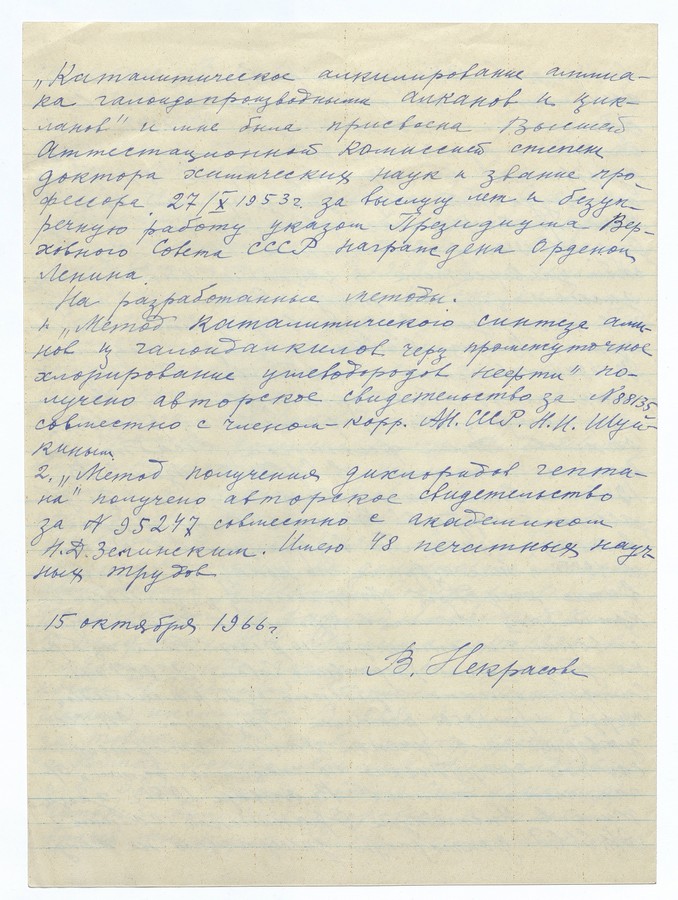 „Каталитическое алкилирование аммиа-
ка галоидопроизводными алканов и цик-
ланов" и мне была присвоена Высшей
Аттестационной комиссией степень
доктора химических наук и звание про-
фессора. 27/X 1953 г. за выслугу лет и безуп-
речную работу указом Президиума Вер-
ховного Совета СССР награждена Орденом
Ленина.
На разработанные методы.
1. „Метод каталитического синтеза ами-
нов из галоидалкилов через промежуточное
хлорирование углеводородов нефти" по-
лучено авторское свидетельство за N 88135
совместно с членом-корр. АН. СССР. Н.И. Шуй-
киным
2. „Метод получения дихлоридов гепта-
на" получено авторское свидетельство
за N 95247 совместно с академиком
Н.Д. Зелинским. Имею 48 печатных науч-
ных трудов
15 октября 1966 г.
В. Некрасова